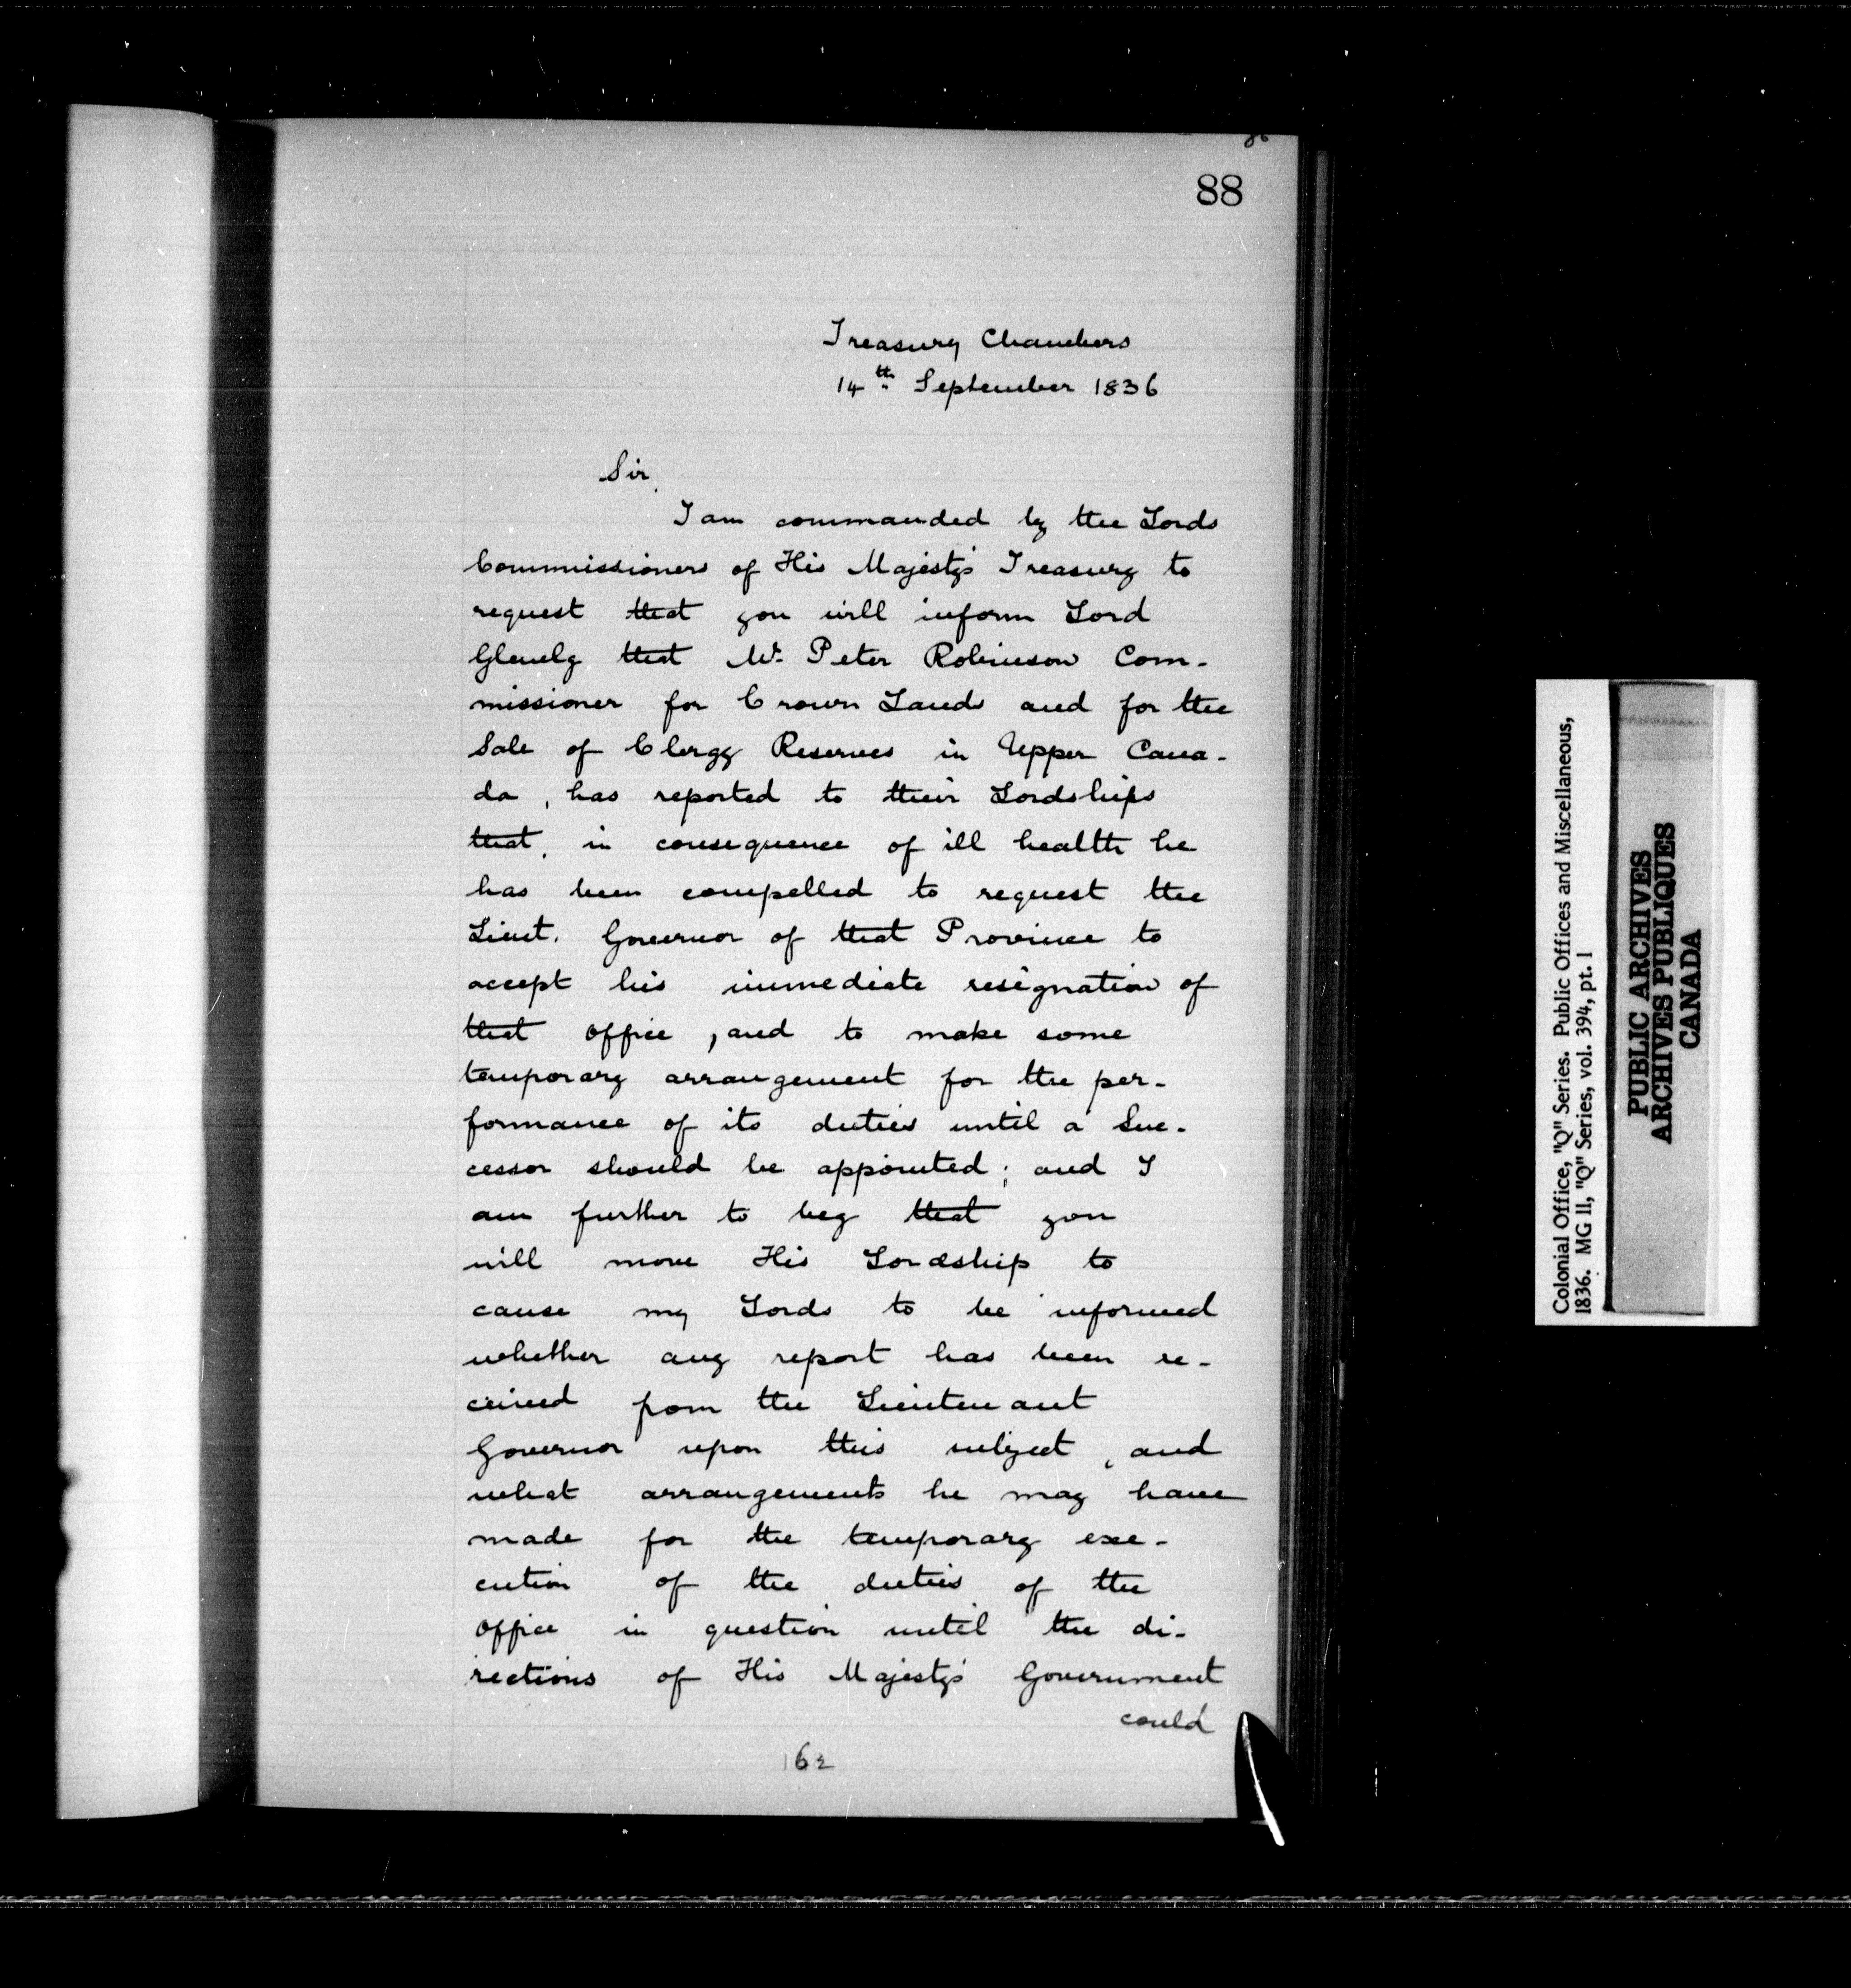 88
Treasury Chambers
14th September 1836
Sir,
I am commanded by the Lords
Commissioners of His Majesty's Treasury to
request that you will inform Lord
Glenelg that Mr. Peter Robinson Com-
missioner for Crown Lands and for the
Sale of Clergy Reserves in Upper Cana-
da, has reported to their Lordships
that, in consequence of ill health he
has been compelled to request the
Lieut. Governor of that Province to
accept his immediate resignation of
that office, and to make some
temporary arrangement for the per-
formance of its duties until a Suc-
cessor should be appointed; and I
am further to beg that you
will move His Lordship to
cause my Lords to be informed
whether any report has been re-
ceived from the Lieutenant
Governor upon this subject, and
what arrangements he may have
made for the temporary exe-
cution of the duties of the
office in question until the di-
rections of His Majesty's Government
could
162
Colonial Office, "Q" Series. Public Offices and Miscellaneous,
1836. MG 11, "Q" Series, vol. 394, pt. 1
PUBLIC ARCHIVES
ARCHIVES PUBLIQUES
CANADA